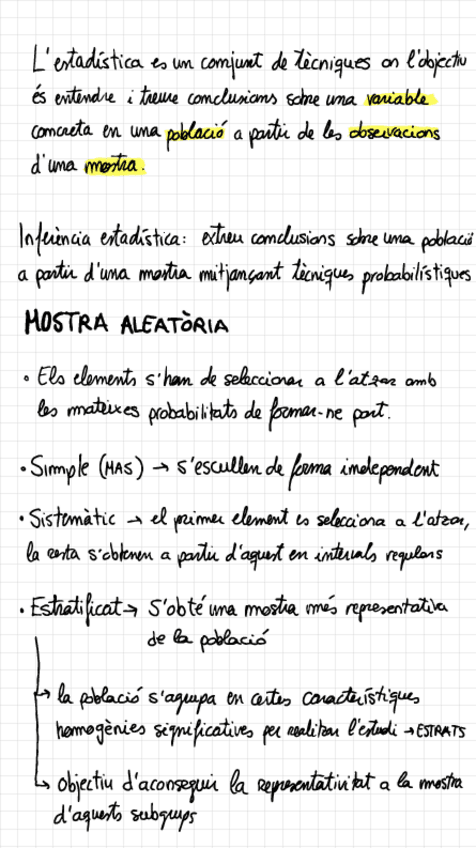 L'estadística es un conjunt de tècniques on l'objectiu
és entendre i treure conclusions sobre una variable
concreta en una població a partir de les observacions
d'una mostra.
Inferència estadística: extreu conclusions sobre una població
a partir d'una mostra mitjançant tècniques probabilístiques
MOSTRA ALEATÒRIA
• Els elements s'han de seleccionar a l'atzar amb
les mateixes probabilitats de formar-ne part.
• Simple (MAS) → s'escullen de forma independent
• Sistemàtic → el primer element es selecciona a l'atzar,
la resta s'obtenen a partir d'aquest en intervals regulars
• Estratificat → S'obté una mostra més representativa
de la població
↳ la població s'agrupa en certes característiques
homogènies significatives per realitzar l'estudi → ESTRATS
↳ objectiu d'aconseguir la representativitat a la mostra
d'aquests subgrups